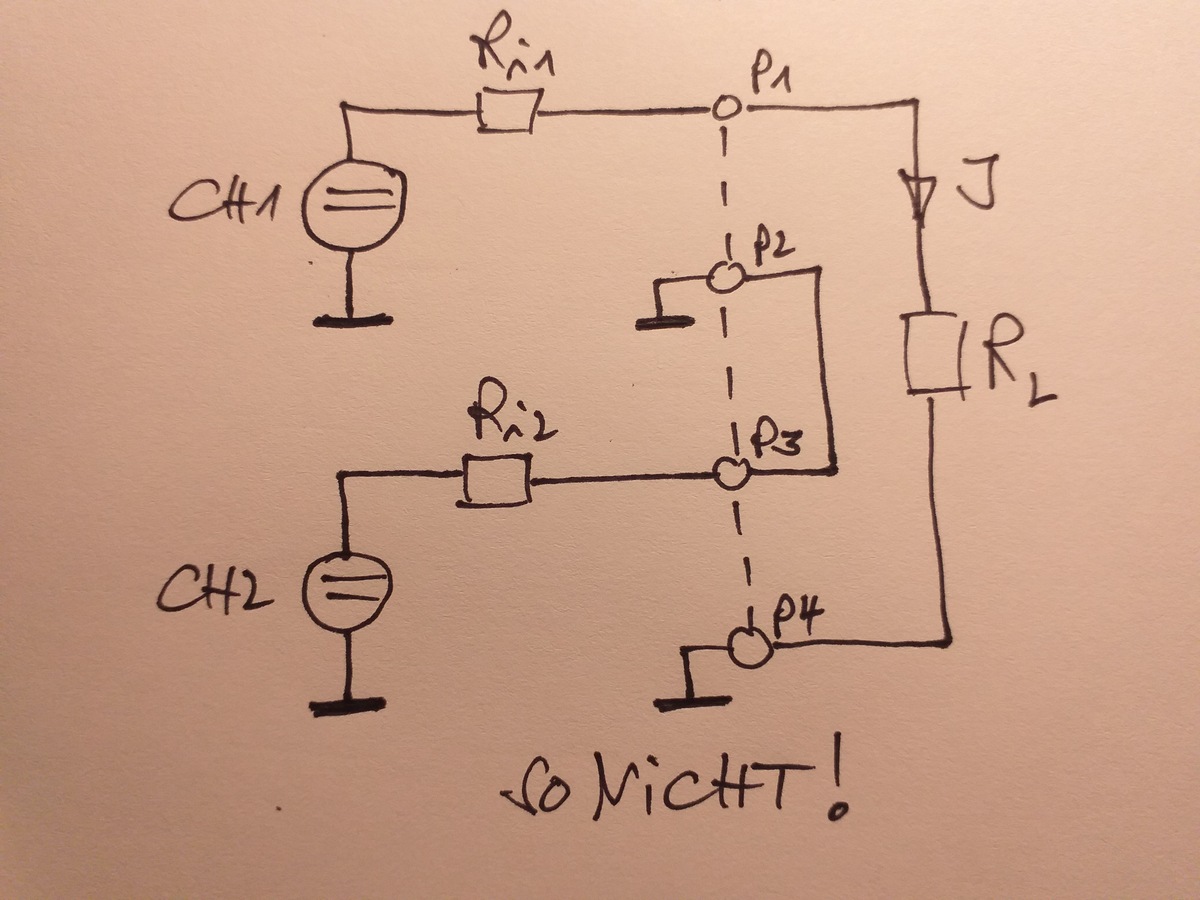 Ri1
P1
CH1
J
P2
RL
Ri2
P3
CH2
P4
SO NiCHT!